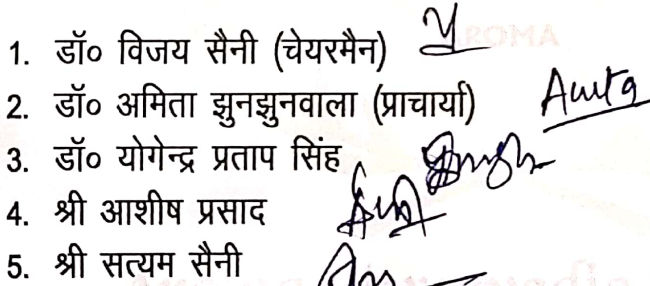 1. डॉ० विजय सैनी (चेयरमैन)
2. डॉ० अमिता झुनझुनवाला (प्राचार्या) Amita
3. डॉ० योगेन्द्र प्रताप सिंह
4. श्री आशीष प्रसाद
5. श्री सत्यम सैनी